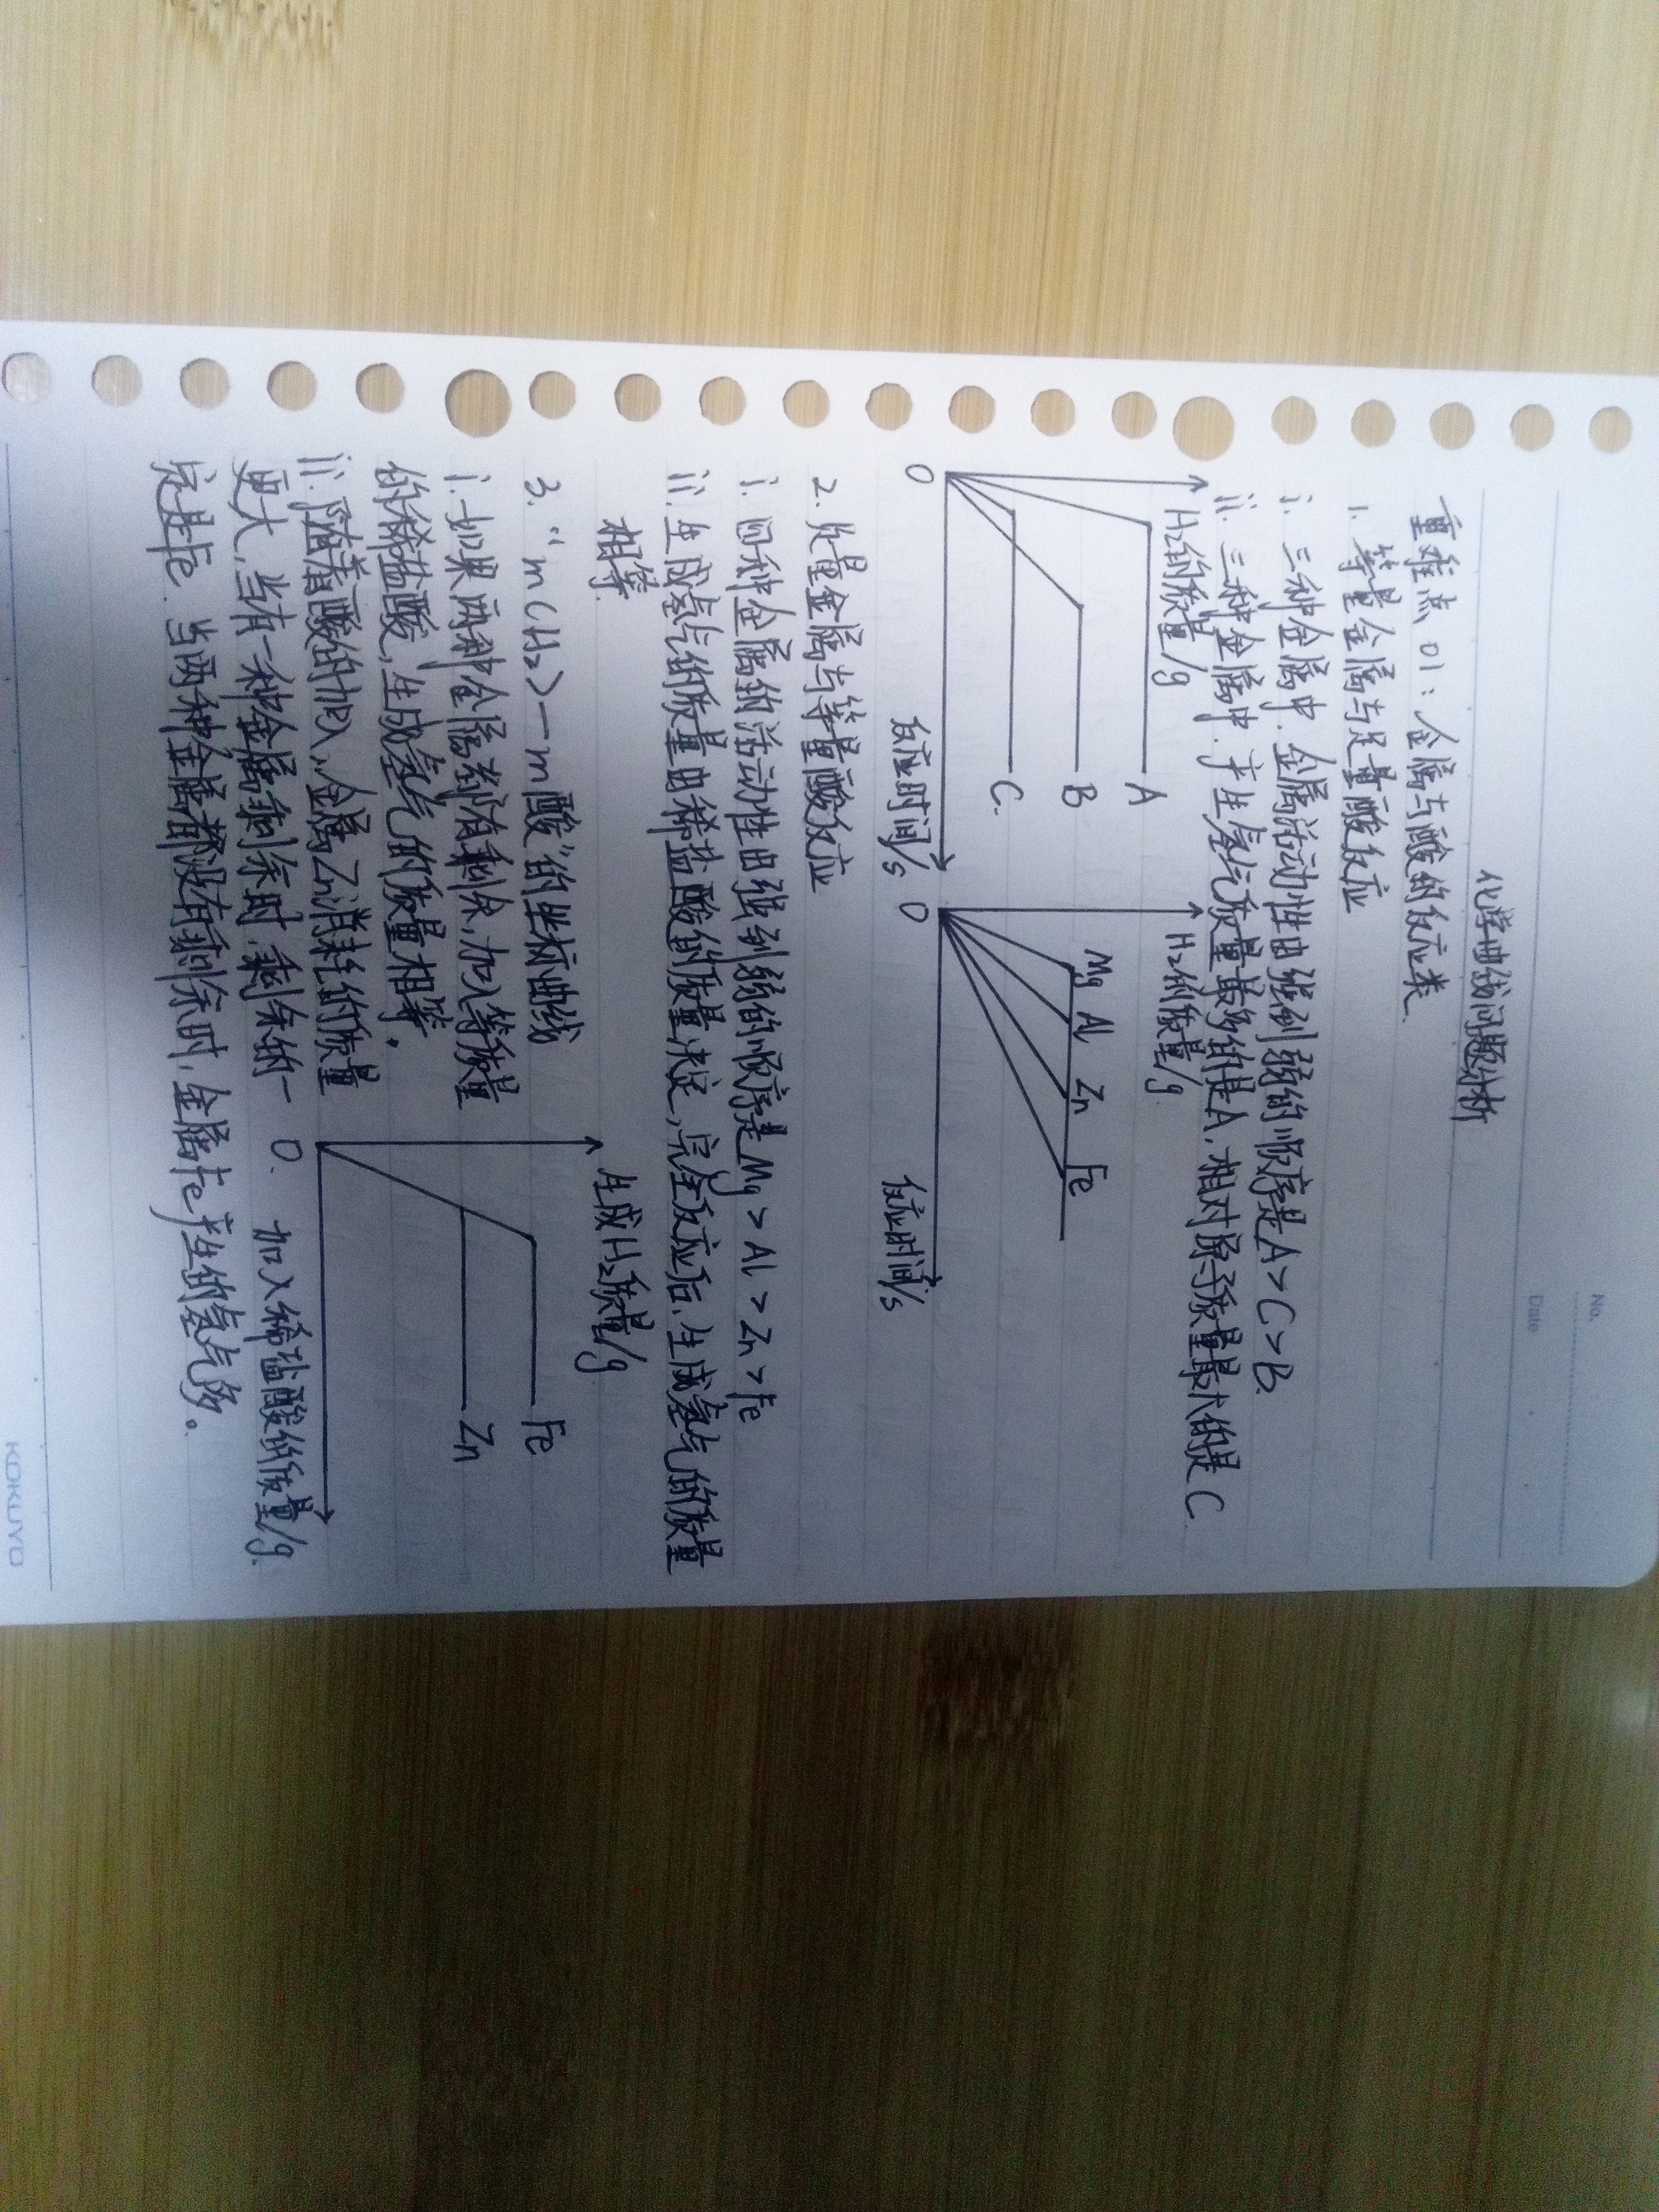 No.
Date
化学曲线问题分析
重难点 01：金属与酸的反应类.
1. 等量金属与足量酸反应
i. 三种金属中. 金属活动性由强到弱的顺序是A＞C＞B.
ii. 三种金属中. 产生氢气质量最多的是A, 相对原子质量最大的是C.
H₂的质量/g
A
B
C
O
反应时间/s
H₂的质量/g
Mg Al Zn Fe
O
反应时间/s
2. 足量金属与等量酸反应
i. 四种金属的活动性由强到弱的顺序是Mg＞Al＞Zn＞Fe
ii. 生成氢气的质量由稀盐酸的质量决定, 完全反应后, 生成氢气的质量
相等.
3. “m(H₂)—m酸”的坐标曲线
i. 如果两种金属都有剩余, 加入等质量
的稀盐酸, 生成氢气的质量相等。
ii. 随着酸的加入, 金属Zn消耗的质量
更大, 当有一种金属剩余时, 剩余的一
定是Fe. 当两种金属都没有剩余时, 金属Fe产生的氢气多。
生成H₂质量/g
Fe
Zn
O.
加入稀盐酸的质量/g.
KOKUYO